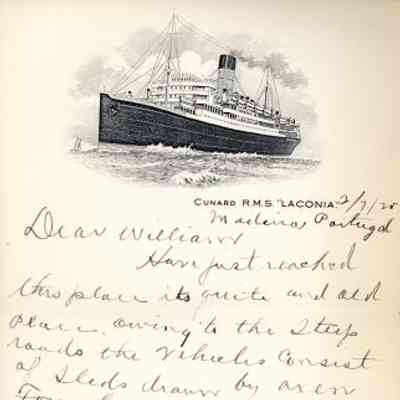 CUNARD R.M.S. "LACONIA"
2/7/25
Madeira Portugal
Dear William
Have just reached
this place its quite and old
place. owing to the steep
roads the vehicles consist
of sleds drawn by oxen